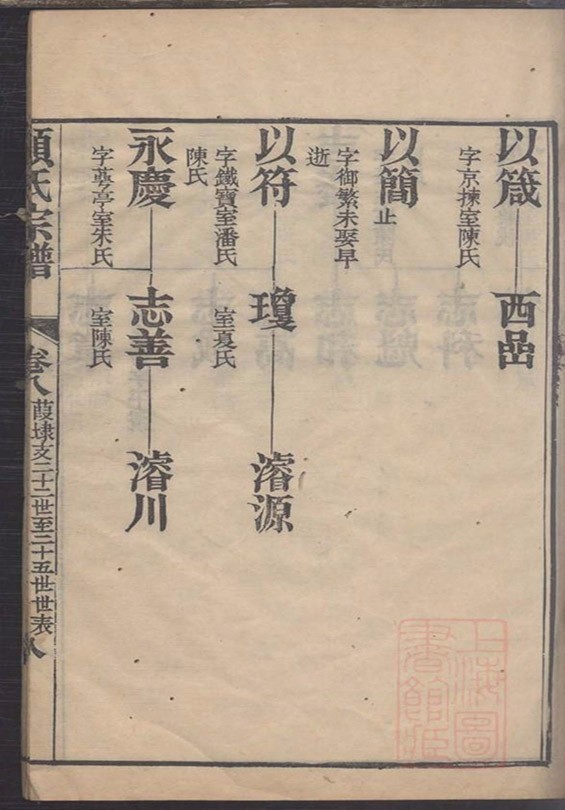 以箴
字京揀室陳氏
西嵒
以簡止
字御繁未娶早
逝
以符
字鐵寶室潘氏
陳氏
瓊
室夏氏
濬源
永慶
字尊亭室朱氏
志善
室陳氏
濬川
顧氏宗譜
卷八
葭埭支二十二世至二十五世世表
八
上海圖
書館藏